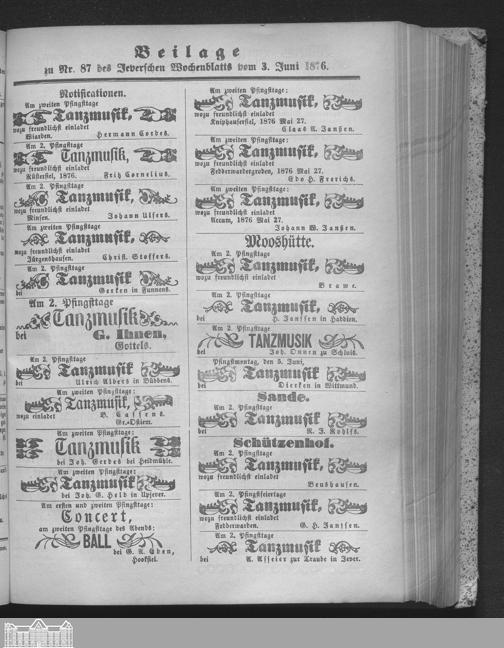 Beilage
zu Nr. 87 des Jeverschen Wochenblatts vom 3. Juni 1876.
Notificationen.
Am zweiten Pfingsttage
Tanzmusik,
wozu freundlichst einladet
Wiarden. Hermann Cordes.
Am 2. Pfingsttage
Tanzmusik,
wozu freundlichst einladet
Rüstersiel, 1876. Fritz Cornelius.
Am 2. Pfingsttage
Tanzmusik,
wozu freundlichst einladet
Minsen. Johann Ulfers.
Am zweiten Pfingsttage
Tanzmusik,
wozu freundlichst einladet
Jürgenshausen. Christ. Stoffers.
Am 2. Pfingsttage
Tanzmusik
bei Gerken in Funnens.
Am 2. Pfingsttage
Tanzmusik
bei G. Ihnen,
Gottels.
Am 2. Pfingsttage
Tanzmusik
bei Ulrich Albers in Bübbens.
Am zweiten Pfingsttage:
Tanzmusik,
wozu einladet B. Cassens.
Gr.-Ostiem.
Am zweiten Pfingsttage:
Tanzmusik
bei Joh. Gerdes bei Heidmühle.
Am zweiten Pfingsttage:
Tanzmusik
bei Joh. G. Held in Upjever.
Am ersten und zweiten Pfingsttage:
Concert,
am zweiten Pfingsttage des Abends:
BALL
bei G. A. Eden,
Hooksiel.
Am zweiten Pfingsttage:
Tanzmusik,
wozu freundlichst einladet
Kniphausersiel, 1876 Mai 27.
Claas R. Janßen.
Am zweiten Pfingsttage:
Tanzmusik,
wozu freundlichst einladet
Fedderwardergroden, 1876 Mai 27.
Edo H. Frerichs.
Am zweiten Pfingsttage:
Tanzmusik,
wozu freundlichst einladet
Accum, 1876 Mai 27.
Johann W. Janßen.
Mooshütte.
Am 2. Pfingsttage
Tanzmusik,
wozu freundlichst einladet
Brawe.
Am 2. Pfingsttage
Tanzmusik,
bei H. Janssen in Haddien.
Am 2. Pfingsttage
TANZMUSIK
bei Joh. Onnen zu Schluis.
Pfingstmontag, den 5. Juni,
Tanzmusik
bei Dierken in Wittmund.
Sande.
Am 2. Pfingsttage
Tanzmusik
bei R. J. Rohlfs.
Schützenhof.
Am 2. Pfingsttage
Tanzmusik,
wozu freundlichst einladet
Beushausen.
Am 2. Pfingstfeiertage
Tanzmusik,
wozu freundlichst einladet
Fedderwarden. G. H. Janssen.
Am 2. Pfingsttage
Tanzmusik
bei A. Affeier zur Traube in Jever.